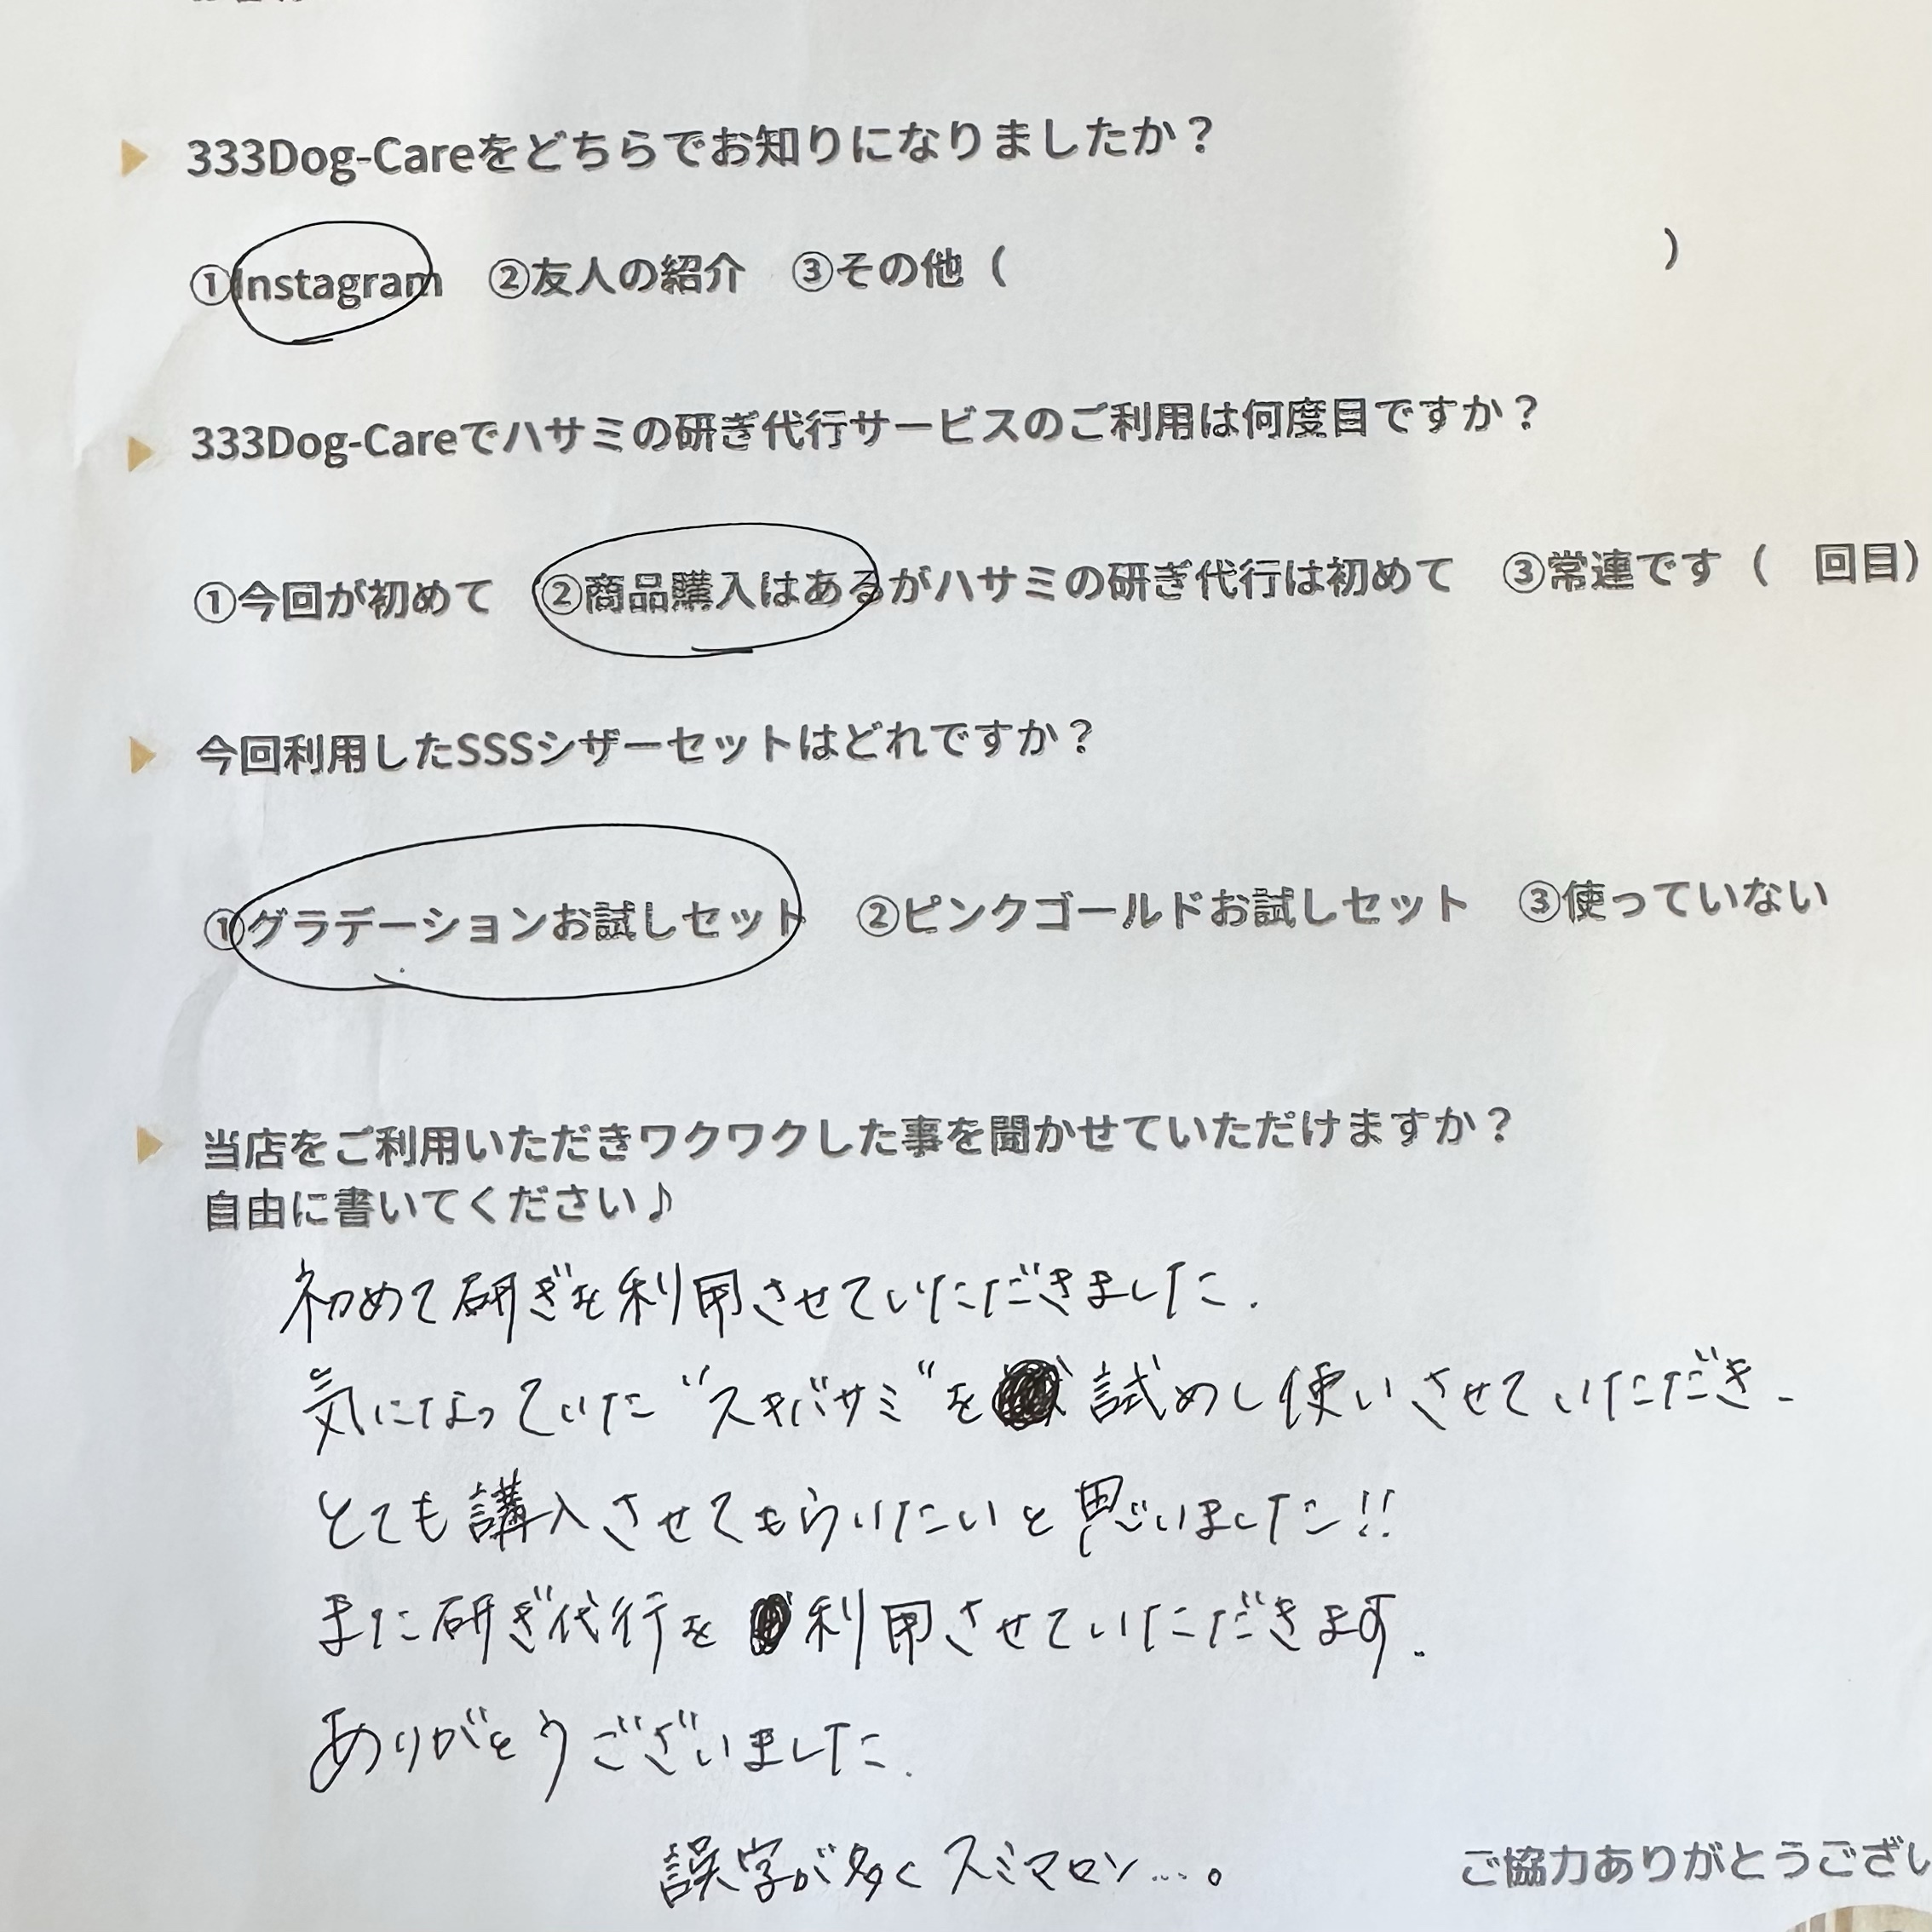 333Dog-Careをどちらでお知りになりましたか？
①Instagram　②友人の紹介　③その他（　　　）
333Dog-Careでハサミの研ぎ代行サービスのご利用は何度目ですか？
①今回が初めて　②商品購入はあるがハサミの研ぎ代行は初めて　③常連です（　回目）
今回利用したSSSシザーセットはどれですか？
①グラデーションお試しセット　②ピンクゴールドお試しセット　③使っていない
当店をご利用いただきワクワクした事を聞かせていただけますか？
自由に書いてください♪
初めて研ぎを利用させていただきました.
気になっていた"スキバサミ"を試めし使いさせていただき、
とても講入させてもらいたいと思いました!!
また研ぎ代行を利用させていただきます.
ありがとうございました.
誤字が多くスミマセン…。
ご協力ありがとうござい